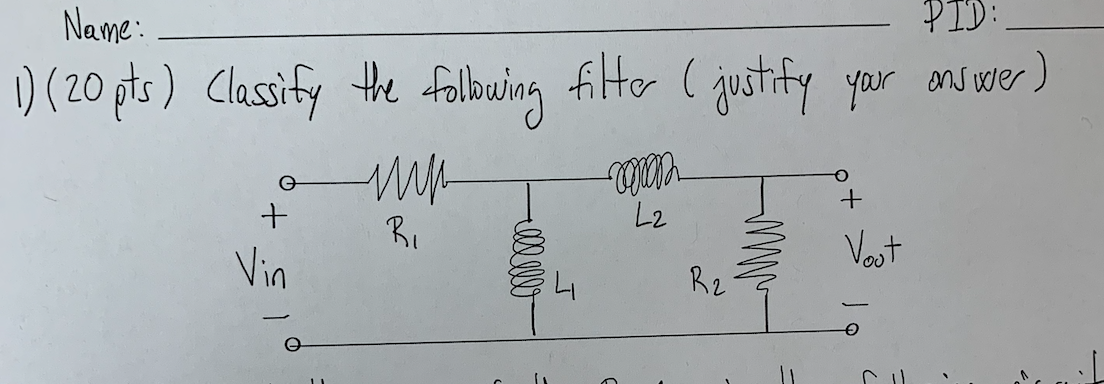 Name: PID:
1) (20 pts) Classify the following filter (justify your answer)
R1 L2
+ +
Vin L1 R2 Vout
- -